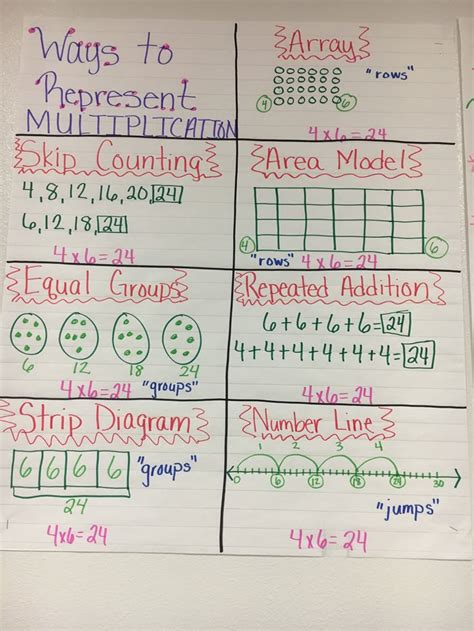 Ways to
Represent
MULTIPLICATION
Array
"rows"
4 6
4x6=24
Skip Counting
4, 8, 12, 16, 20, 24
6, 12, 18, 24
4x6=24
Area Model
4 6
"rows" 4x6=24
Equal Groups
6 12 18 24
4x6=24 "groups"
Repeated Addition
6+6+6+6=24
4+4+4+4+4+4=24
4x6=24
Strip Diagram
6 6 6 6 "groups"
24
4x6=24
Number Line
1 2 3 4
0 6 12 18 24 30
"jumps"
4x6=24